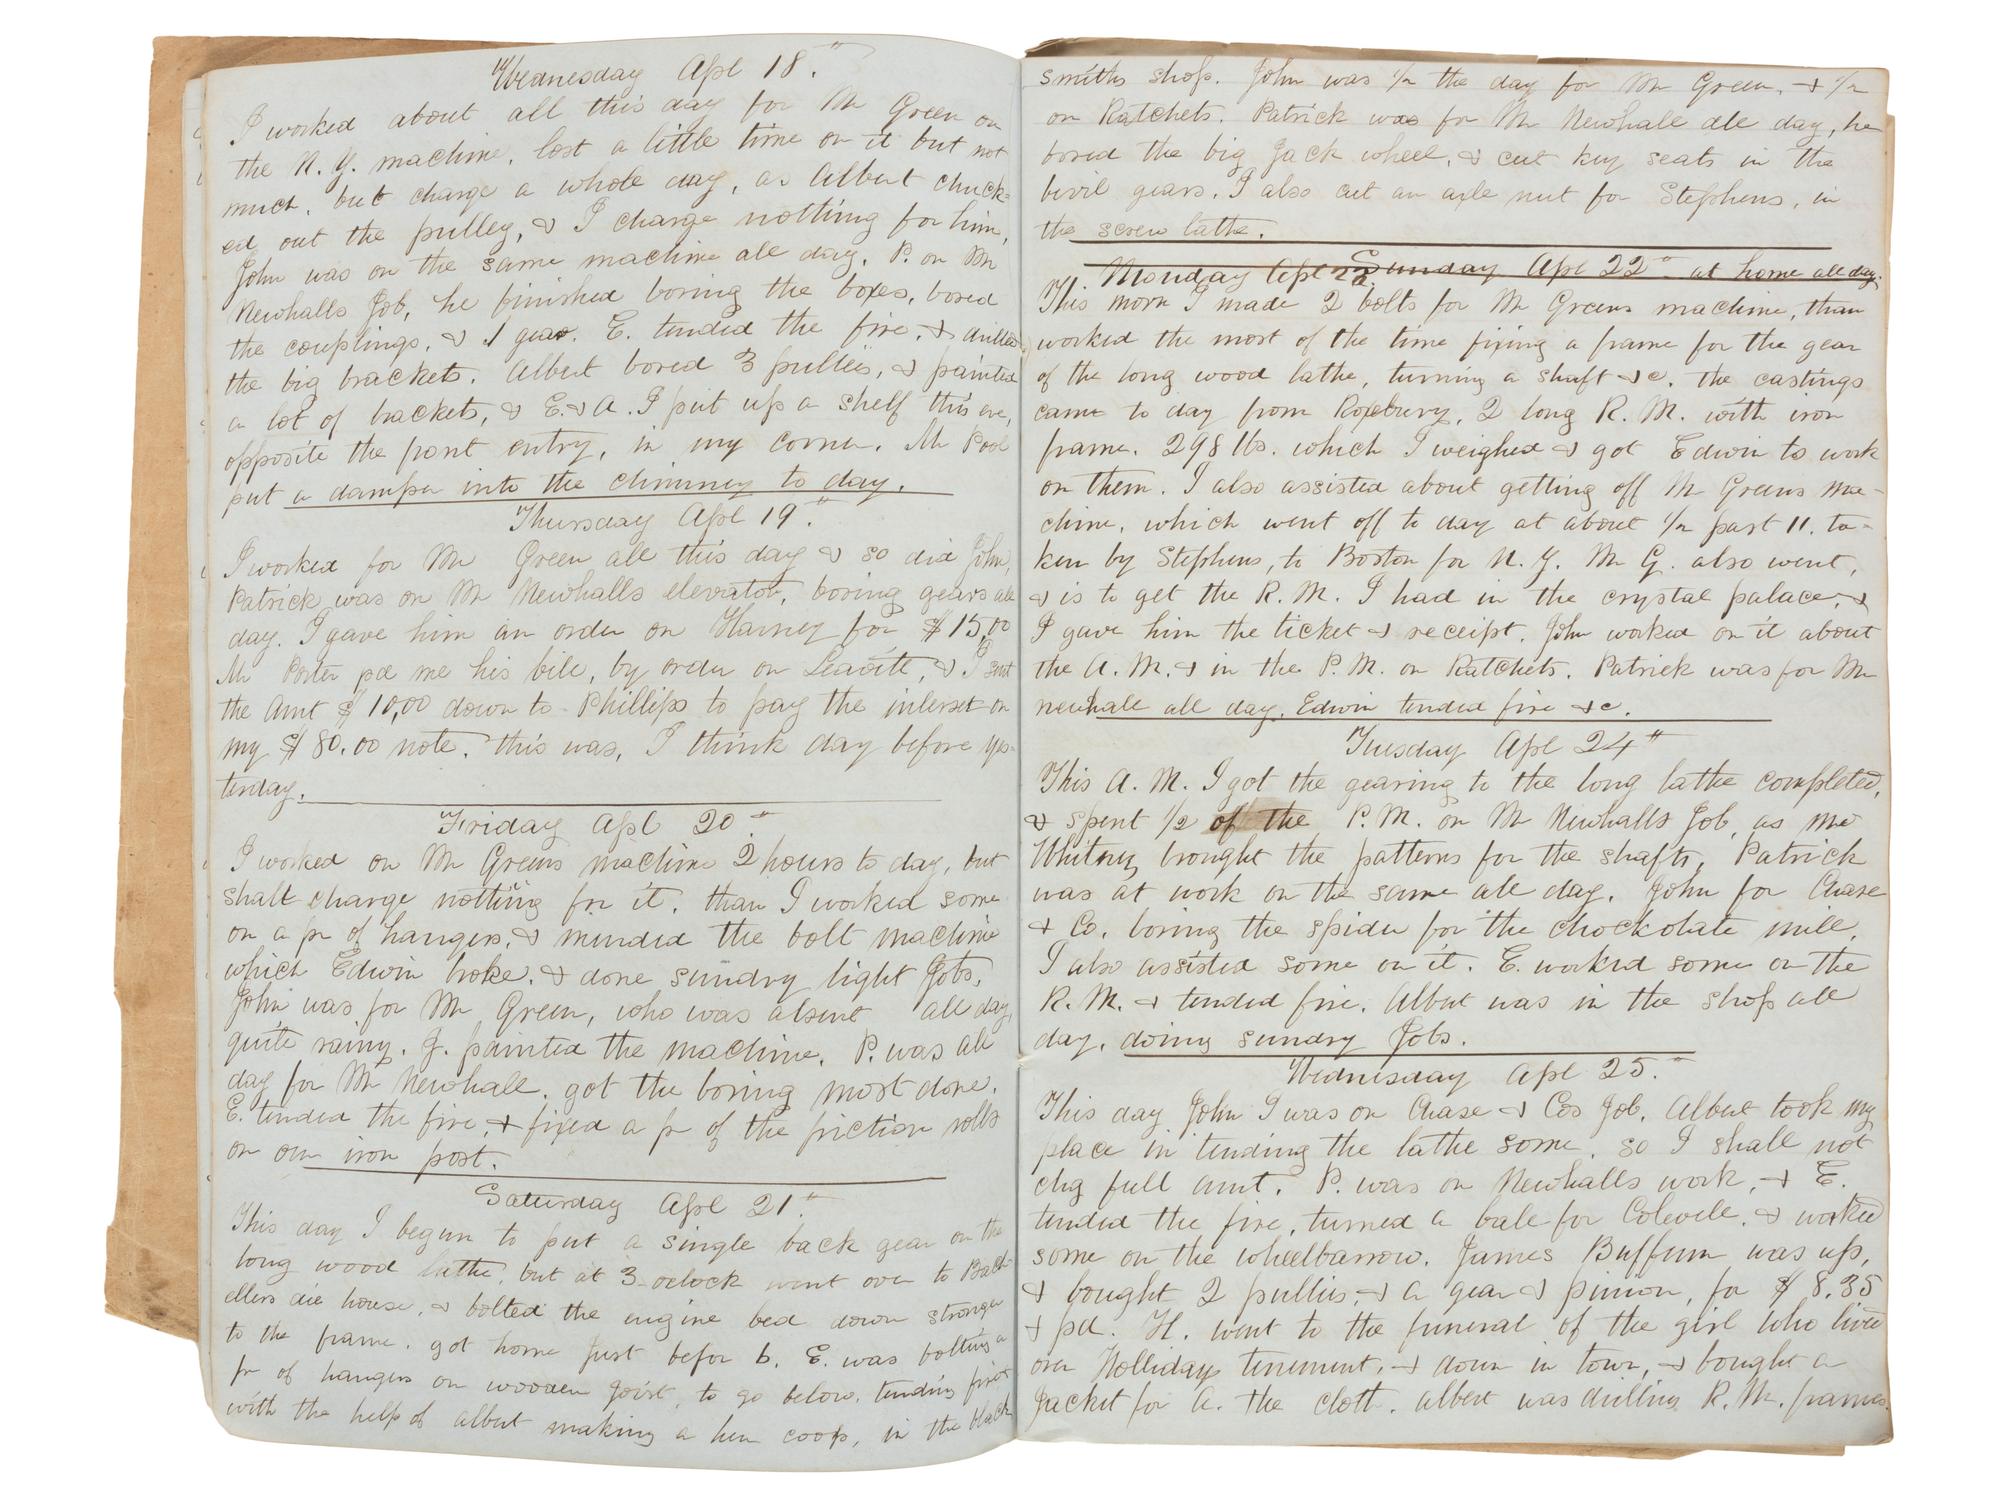 Wednesday Apl 18.
I worked about all this day for Mr Green on
the N. Y. machine, lost a little time on it but not
much, but charge a whole day, as Albert chuck-
ed out the pulley, & I charge nothing for him,
John was on the same machine all day, P. on Mr
Newhalls Job, he finished boring the boxes, bored
the couplings, & 1 gear. E. tended the fire, & drilled
the big brackets. Albert bored 3 pullies, & painted
a lot of brackets, & E. & A. I put up a shelf this eve,
opposite the front entry, in my corner. Mr Pool
put a damper into the chimney to day.
Thursday Apl 19.
I worked for Mr Green all this day & so did John,
Patrick was on Mr Newhalls elevator, boring gears all
day. I gave him an order on Harney for $15,00
Mr Porter pd me his bill, by order on Leavitt, & I sent
the Amt $10,00 down to Phillips to pay the interest on
my $80.00 note. this was, I think day before yes-
terday.
Friday Apl 20.
I worked on Mr Greens machine 2 hours to day, but
shall charge nothing for it. than I worked some
on a pr of hangers, & mended the bolt machine
which Edwin broke. & done sundry light Jobs.
John was for Mr Green, who was absent all day,
quite rainy. J. painted the machine. P. was all
day for Mr Newhall, got the boring most done.
E. tended the fire, & fixed a pr of the friction rolls
on our iron post.
Saturday Apl 21.
This day I begun to put a single back gear on the
long wood lathe, but at 3 oclock went over to Bach-
ellers die house, & bolted the engine bed down stronger
to the frame. got home Just befor 6. E. was bolting a
pr of hangers on wooden Joist, to go below, tending fire
with the help of Albert making a hen coop, in the black
smiths shop. John was 1/2 the day for Mr Green, & 1/2
on Ratchets. Patrick was for Mr Newhall all day, he
bored the big Jack wheel, & cut key seats in the
bevil gears. I also cut an axle nut for Stephens, in
the screw lathe.
Sunday Apl 22 at home all day.
Monday Apl 23.
This morn I made 2 bolts for Mr Greens machine, than
worked the most of the time fixing a frame for the gear
of the long wood lathe, turning a shaft &c. the castings
came to day from Roxbury, 2 long R. M. with iron
frame. 298 lbs. which I weighed & got Edwin to work
on them. I also assisted about getting off Mr Greens ma-
chine, which went off to day at about 1/2 past 11. ta-
ken by Stephens, to Boston for N. Y. Mr G. also went,
& is to get the R. M. I had in the crystal palace, &
I gave him the ticket & receipt. John worked on it about
the A. M. & in the P. M. on Ratchets. Patrick was for Mr
newhall all day. Edwin tended fire &c.
Tuesday Apl 24"
This A. M. I got the gearing to the long lathe completed,
& spent 1/2 of the P. M. on Mr Newhalls Job, as Mr
Whitney brought the patterns for the shafts, Patrick
was at work on the same all day. John for Chase
& Co. boring the spider for the chockolate mill,
I also assisted some on it. E. worked some on the
R. M. & tended fire. Albert was in the shop all
day, doing sundry Jobs.
Wednesday Apl 25.
This day John I was on Chase & Cos Job, Albert took my
place in tending the lathe some, so I shall not
chg full amt. P. was on Newhalls work, & E.
tended the fire, turned a bale for Colwell, & worked
some on the wheelbarrow. James Buffum was up,
& bought 2 pullies, & a gear & pinion, for $8.35
& pd. H. went to the funeral of the girl who lived
over Hollidays tenement, & down in town, & bought a
Jacket for A. the cloth. Albert was drilling R. M. frames.